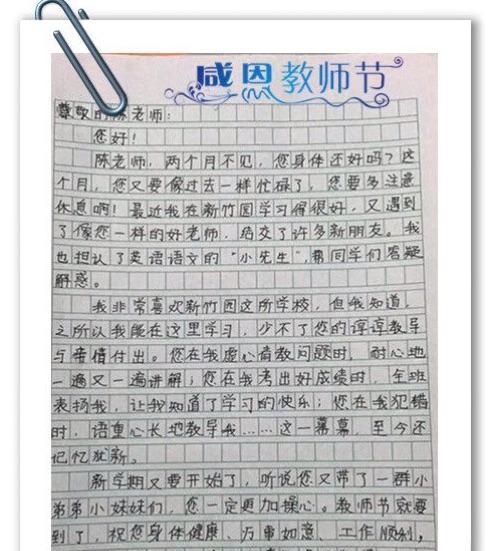 感恩教师节
尊敬的陈老师：
您好！
陈老师，两个月不见，您身体还好吗？这
个月，您又要像过去一样忙碌了，您要多注意
休息啊！最近我在新竹园学习得很好，又遇到
了像您一样的好老师，结交了许多新朋友。我
也担认了英语语文的“小先生”，帮同学们答疑
解惑。
我非常喜欢新竹园这所学校，但我知道，
之所以我能在这里学习，少不了您的谆谆教导
与悄悄付出。您在我虚心请教问题时，耐心地
一遍又一遍讲解；您在我考出好成绩时，全班
表扬我，让我知道了学习的快乐；您在我犯错
时，语重心长地教导我……这一幕幕，至今还
记忆犹新。
新学期又要开始了，听说您又带了一群小
弟弟小妹妹们，您一定更加操心。教师节就要
到了，祝您身体健康、万事如意、工作顺利，